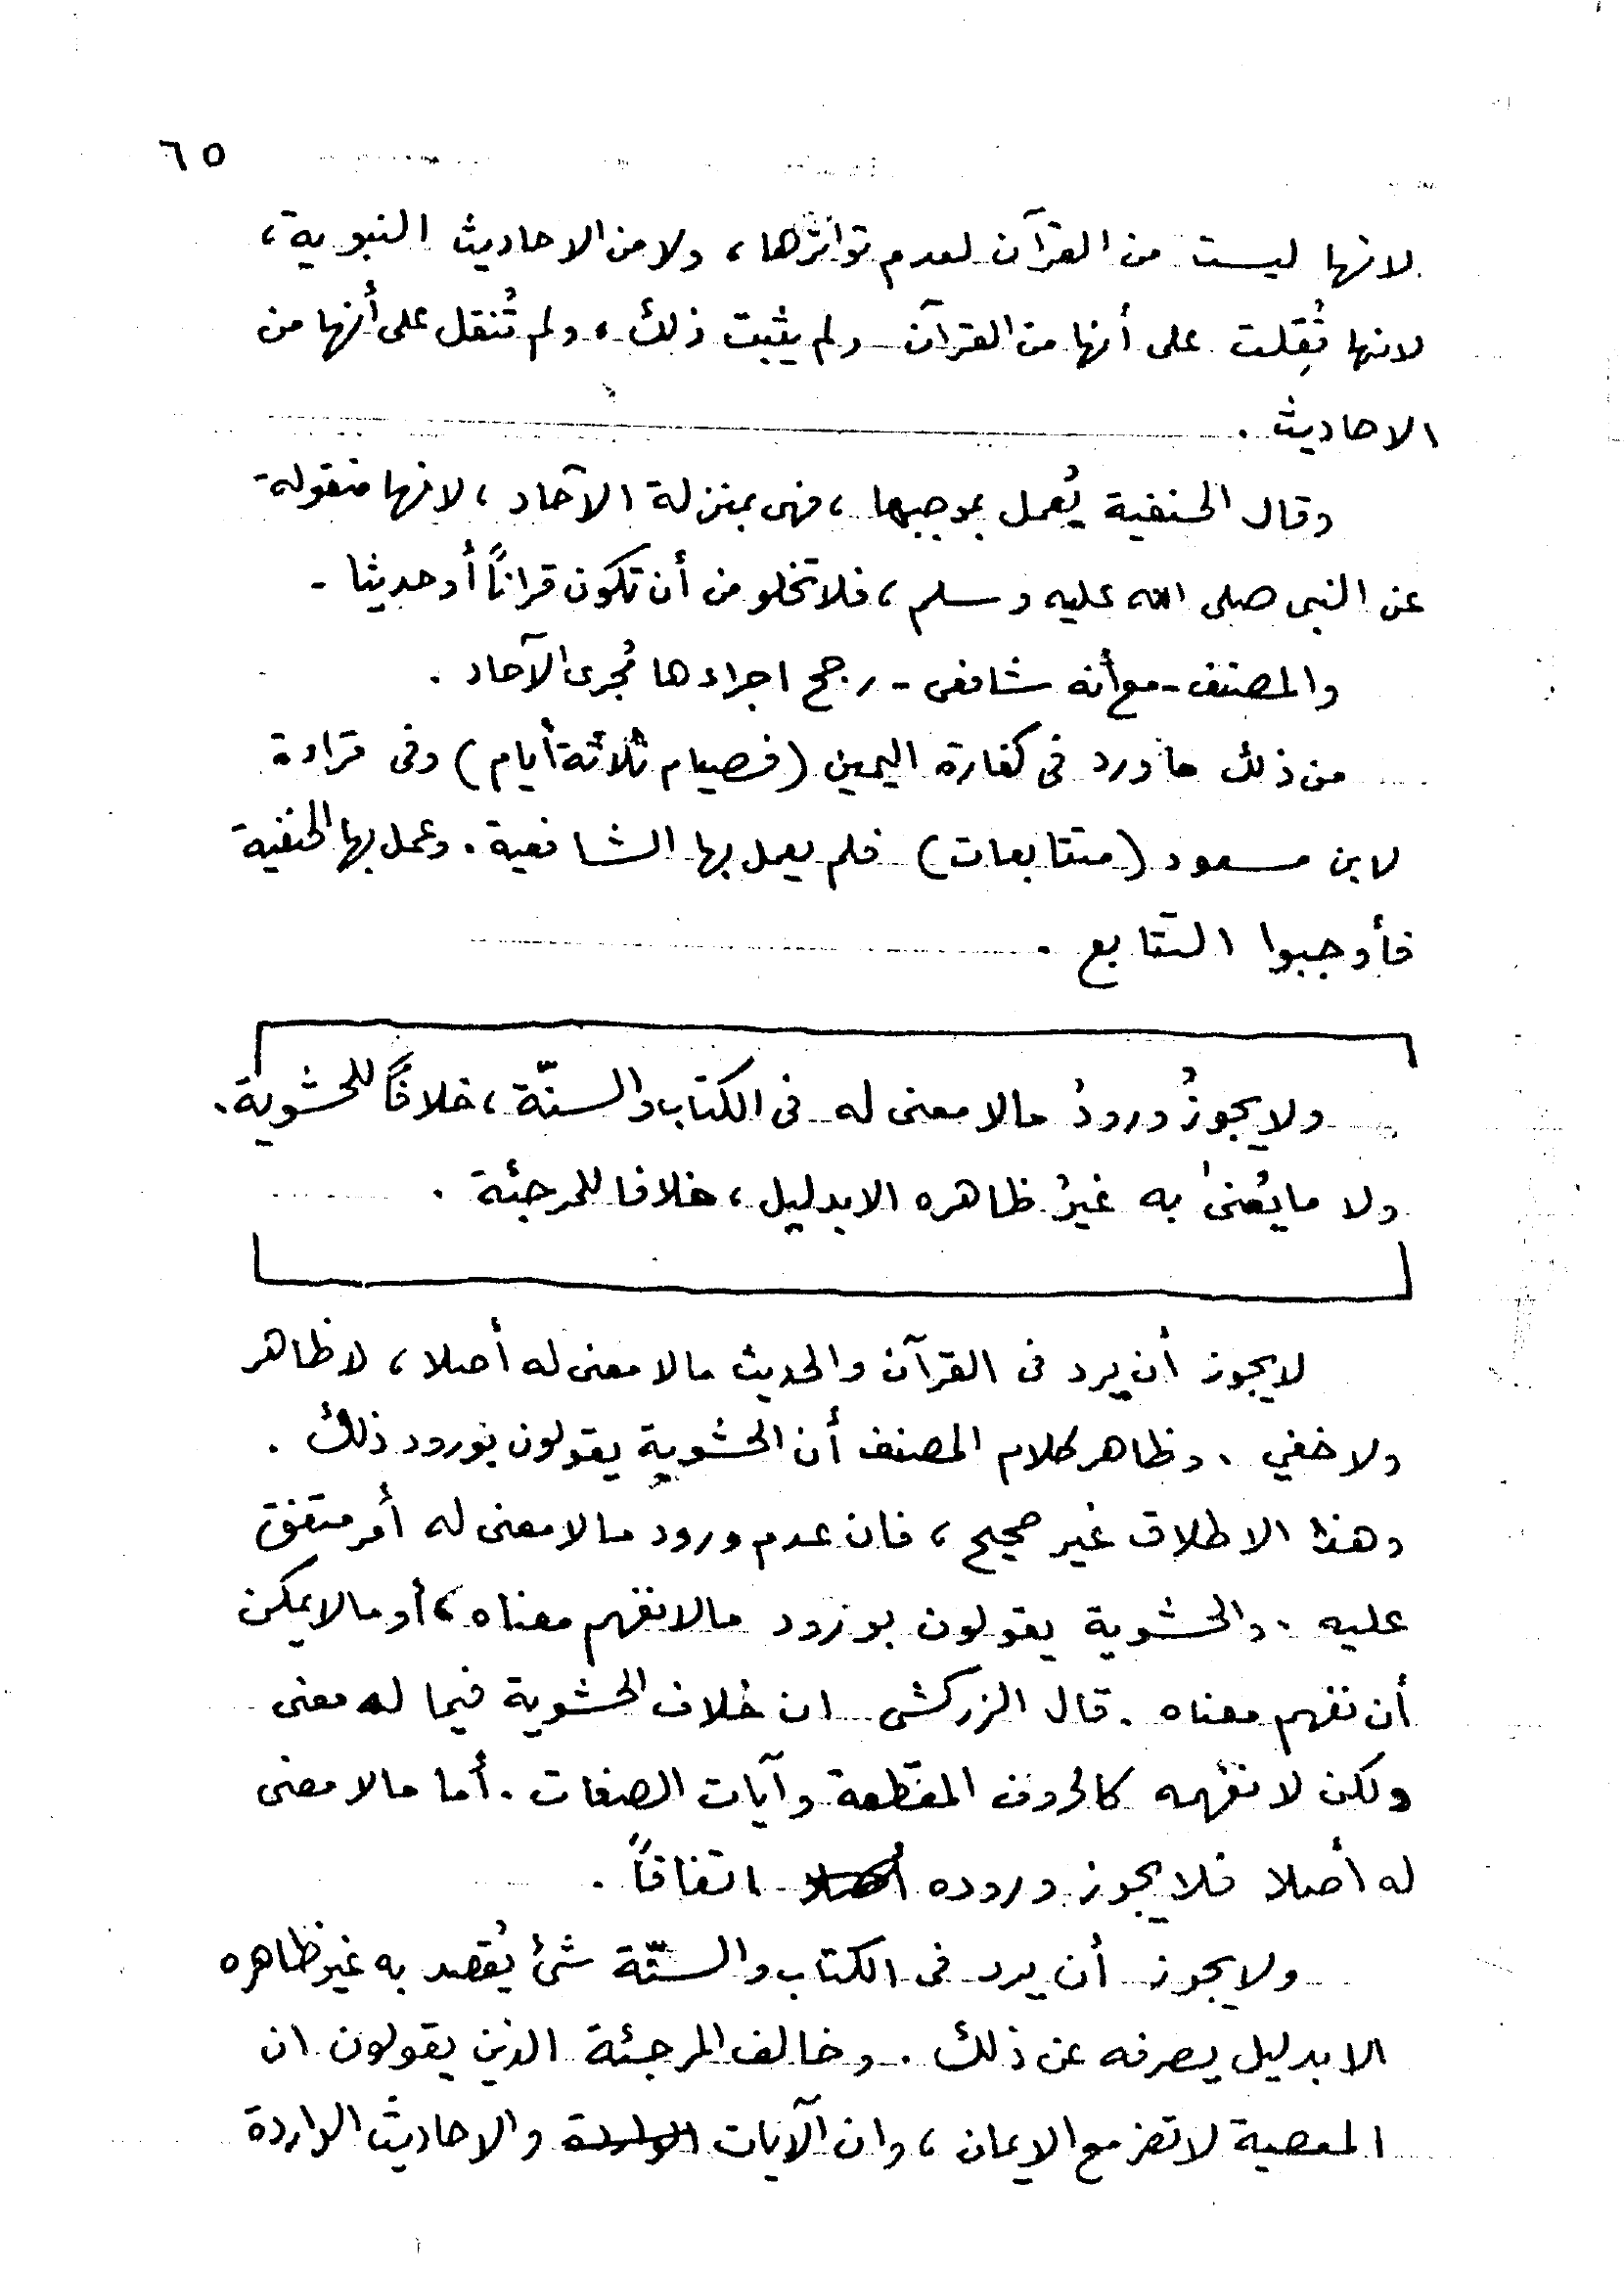 ٦٥
لانها ليست من القرآن لعدم تواترها ، ولا من الاحاديث النبوية ،
لانها نُقِلت على أنها من القرآن ولم يثبت ذلك ، ولم تُنقل على أنها من
الاحاديث .
وقال الحنفية يُعمل بموجبها ، فهى بمنزلة الآحاد ، لانها منقولة
عن النبى صلى الله عليه وسلم ، فلا تخلو من أن تكون قراناً أو حديثا -
والمصنف - مع أنه شافعى - رجح اجراءها مُجرى الآحاد .
من ذلك ما ورد فى كفارة اليمين (فصيام ثلاثة أيام) وفى قراءة
لابن مسعود (متتابعات) فلم يعمل بها الشافعية . وعمل بها الحنفية
فأوجبوا التتابع .
ولا يجوزُ ورودُ مالا معنى له فى الكتاب والسنّة ، خلافاً للحشوية .
ولا ما يُعنىٰ به غيرُ ظاهره الا بدليل ، خلافا للمرجئة .
لا يجوز أن يرد فى القرآن والحديث مالا معنى له أصلا ، لا ظاهر
ولا خفي . وظاهر كلام المصنف أن الحشوية يقولون بورود ذلك .
وهذا الاطلاق غير صحيح ، فان عدم ورود مالا معنى له أمر متفق
عليه . والحشوية يقولون بورود مالا نفهم معناه ، أو مالا يمكن
أن نفهم معناه . قال الزركشى ان خلاف الحشوية فيما له معنى
ولكن لا نفهمه كالحروف المقطعة وآيات الصفات . أما مالا معنى
له أصلا فلا يجوز وروده اتفاقاً .
ولا يجوز أن يرد فى الكتاب والسنّة شئ يُقصد به غير ظاهره
الا بدليل يصرفه عن ذلك . وخالف المرجئة الذين يقولون ان
المعصية لا تضر مع الايمان ، وان الآيات والاحاديث الواردة